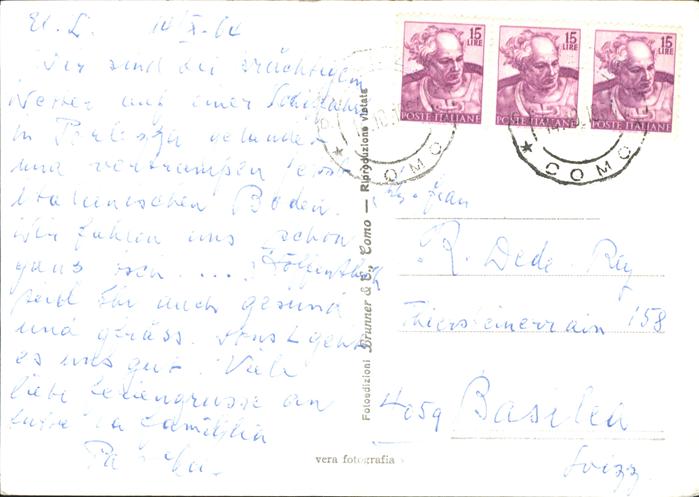 14 X. 64
Wir sind bei prächtigem
Wetter auf einer
in Porlezza gelandet
und vertrampen
Italienischen Boden.
Wir fühlen uns schon
ganz
seid Ihr auch gesund
und
es uns gut. Viele
liebe Feriengrüsse an
la familglia
15
LIRE
POSTE ITALIANE
15
LIRE
POSTE ITALIANE
15
LIRE
POSTE ITALIANE
COMO
COMO
Fotoedizioni Brunner & C., Como — Riproduzione vietata
R. Dede-Rey
Thiersteinerrain 158
4059 Basilea
Svizz.
vera fotografia